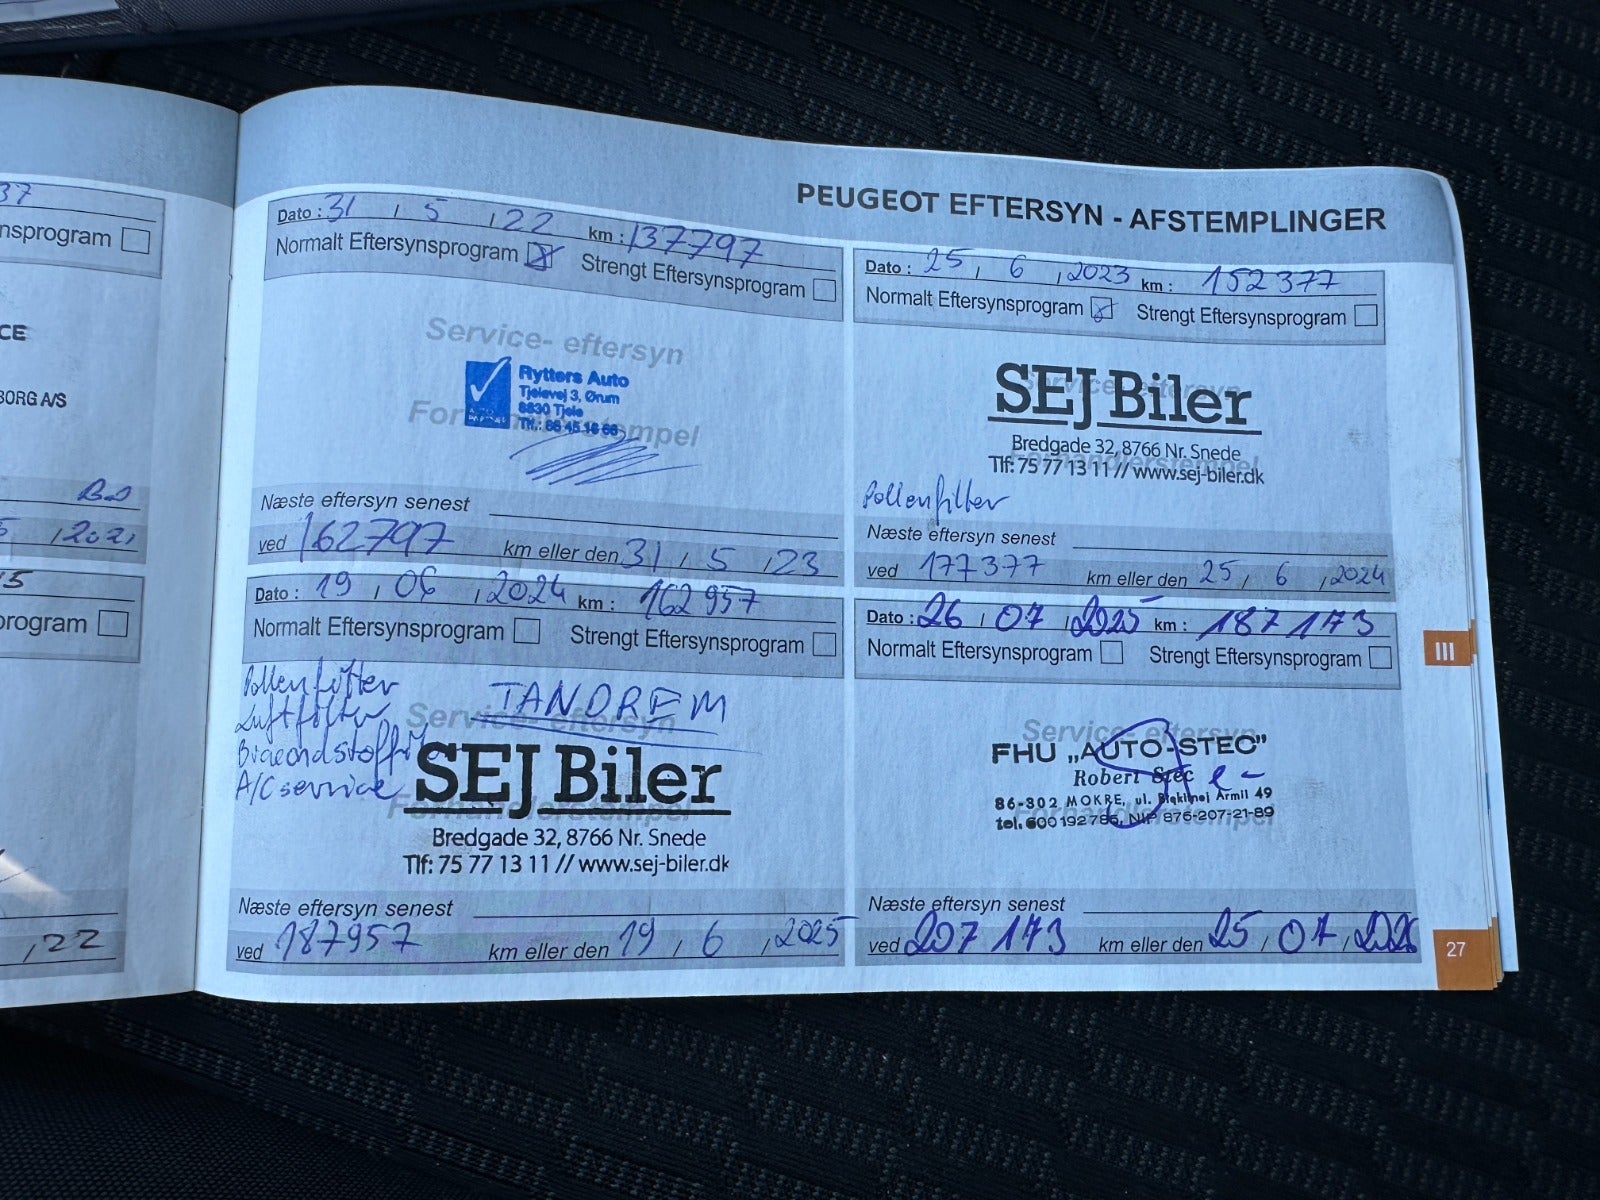 37
nsprogram
CE
BORG A/S
2021
5
program
,22
PEUGEOT EFTERSYN - AFSTEMPLINGER
Dato : 31 / 5 / 22 km : 137797
Normalt Eftersynsprogram Strengt Eftersynsprogram
Service- eftersyn
Rytters Auto
Tjelevej 3, Ørum
8830 Tjele
Tlf.: 86 45 16 66
Næste eftersyn senest
ved 162797 km eller den 31 / 5 / 23
Dato : 25 / 6 / 2023 km : 152377
Normalt Eftersynsprogram Strengt Eftersynsprogram
Service- eftersyn
SEJ Biler
Bredgade 32, 8766 Nr. Snede
Tlf: 75 77 13 11 // www.sej-biler.dk
Forhandlerstempel
Pollenfilter
Næste eftersyn senest
ved 177377 km eller den 25 / 6 / 2024
Dato : 19 / 06 / 2024 km : 162957
Normalt Eftersynsprogram Strengt Eftersynsprogram
Pollenfilter
Luftfilter
Brændstoffil
A/C service
TANDREM
Service- eftersyn
SEJ Biler
Forhandlerstempel
Bredgade 32, 8766 Nr. Snede
Tlf: 75 77 13 11 // www.sej-biler.dk
Næste eftersyn senest
ved 187957 km eller den 19 / 6 / 2025
Dato : 26 / 07 / 2025 km : 187173
Normalt Eftersynsprogram Strengt Eftersynsprogram
Service- eftersyn
FHU „AUTO-STEC"
Robert Stec
86-302 MOKRE, ul. Błękitnej Armii 49
tel. 600 192 786, NIP 876-207-21-89
Forhandlerstempel
Næste eftersyn senest
ved 207 173 km eller den 25 / 07 / 2026
III
27